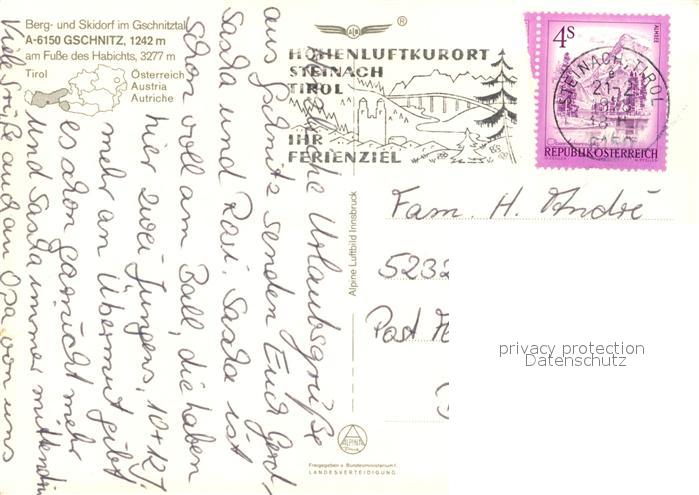 Berg- und Skidorf im Gschnitztal
A-6150 GSCHNITZ, 1242 m
am Fuße des Habichts, 3277 m
Tirol
Österreich
Austria
Autriche
Urlaubsgrüße
aus Gschnitz senden Euch Gerd,
Sascha und Roswi. Sascha ist
schon voll am Ball, die haben
hier zwei Jungens, 10 + 12 J.
mehr an Übermut gibt
es schon garnicht mehr
und Sascha immer mittendrin
Viele Grüße auch an Opa von uns
Alpine Luftbild Innsbruck
ALPINE
Freigegeben v. Bundesministerium f.
LANDESVERTEIDIGUNG
HÖHENLUFTKURORT
STEINACH
TIROL
IHR
FERIENZIEL
4S
ALMSEE
REPUBLIK ÖSTERREICH
STEINACH, TIROL
6150
Fam. H. André
5232
Post
privacy protection
Datenschutz